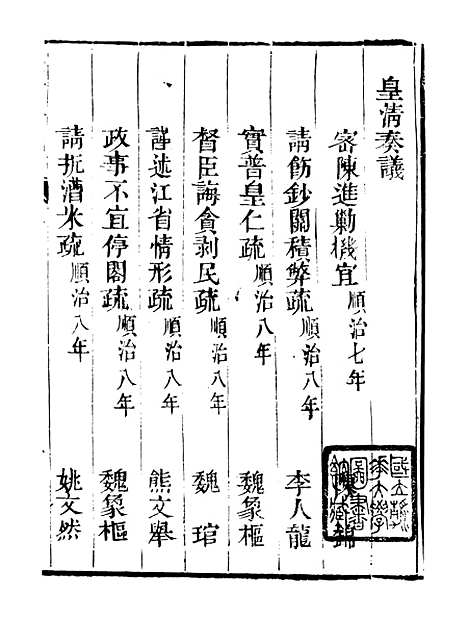 皇清奏議
密陳進勦機宜 順治七年 錦
請飭鈔關積弊疏 順治八年 李人龍
實普皇仁疏 順治八年 魏象樞
督臣誨貪剥民疏 順治八年 魏琯
詳述江省情形疏 順治八年 熊文舉
政事不宜停閣疏 順治八年 魏象樞
請折漕米疏 順治八年 姚文然